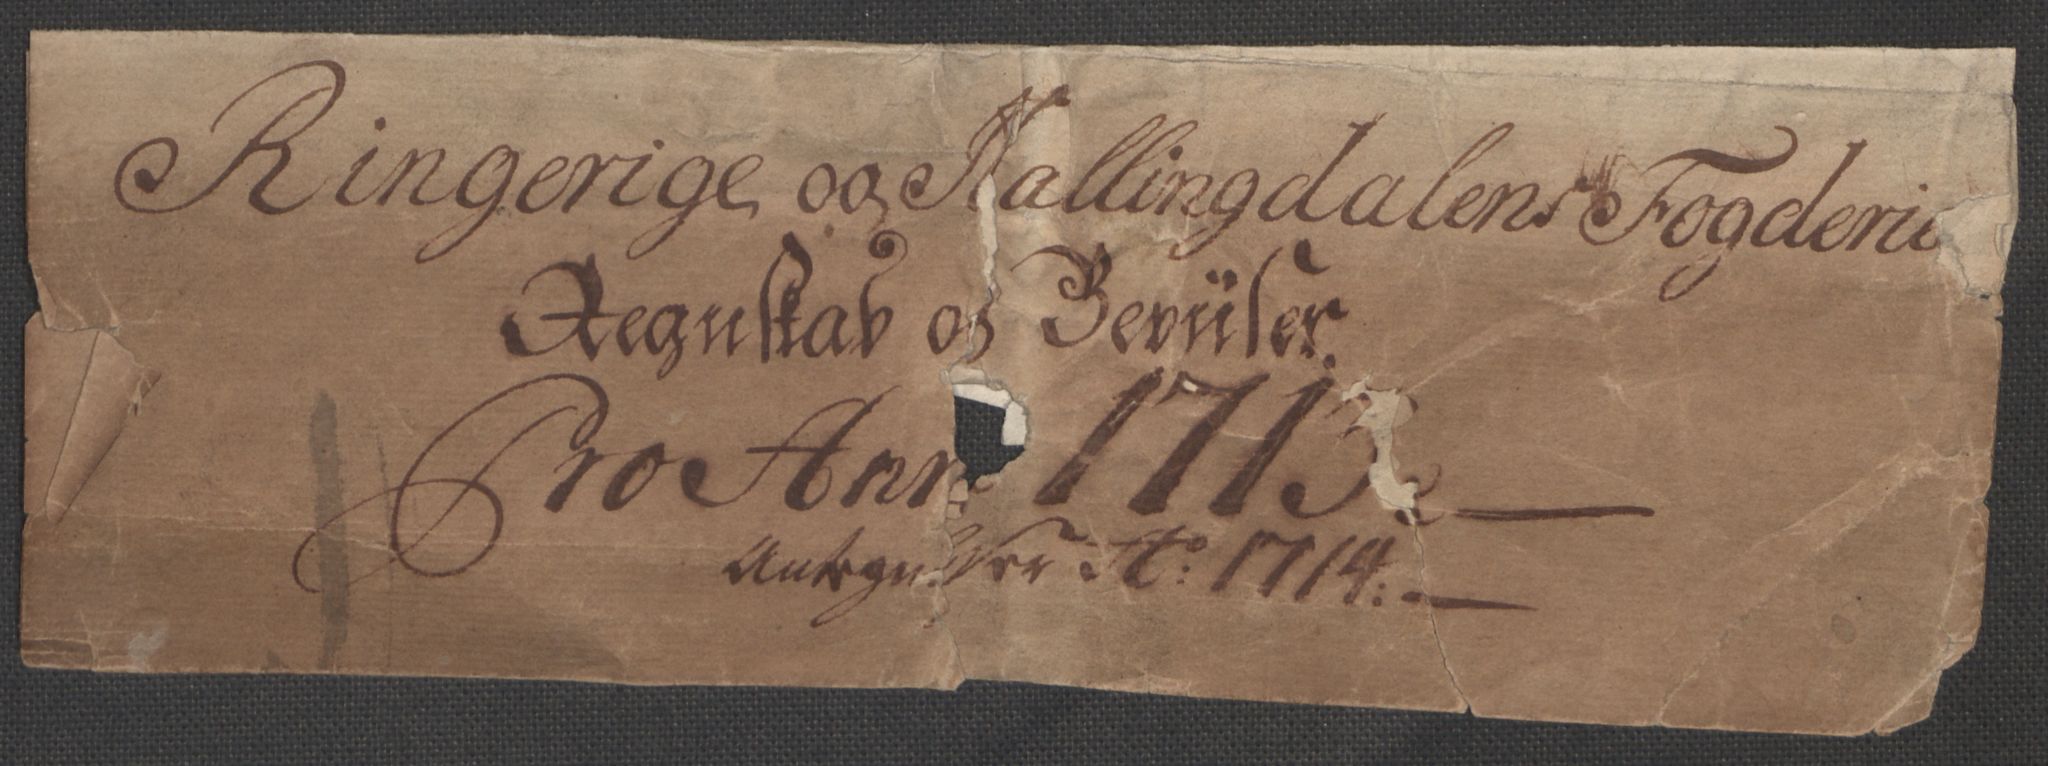 Ringerige og Hallingdalens Fogderie
Regnskab og Beviiser
Pro Anno 1713
Antegnelser St: 1714: